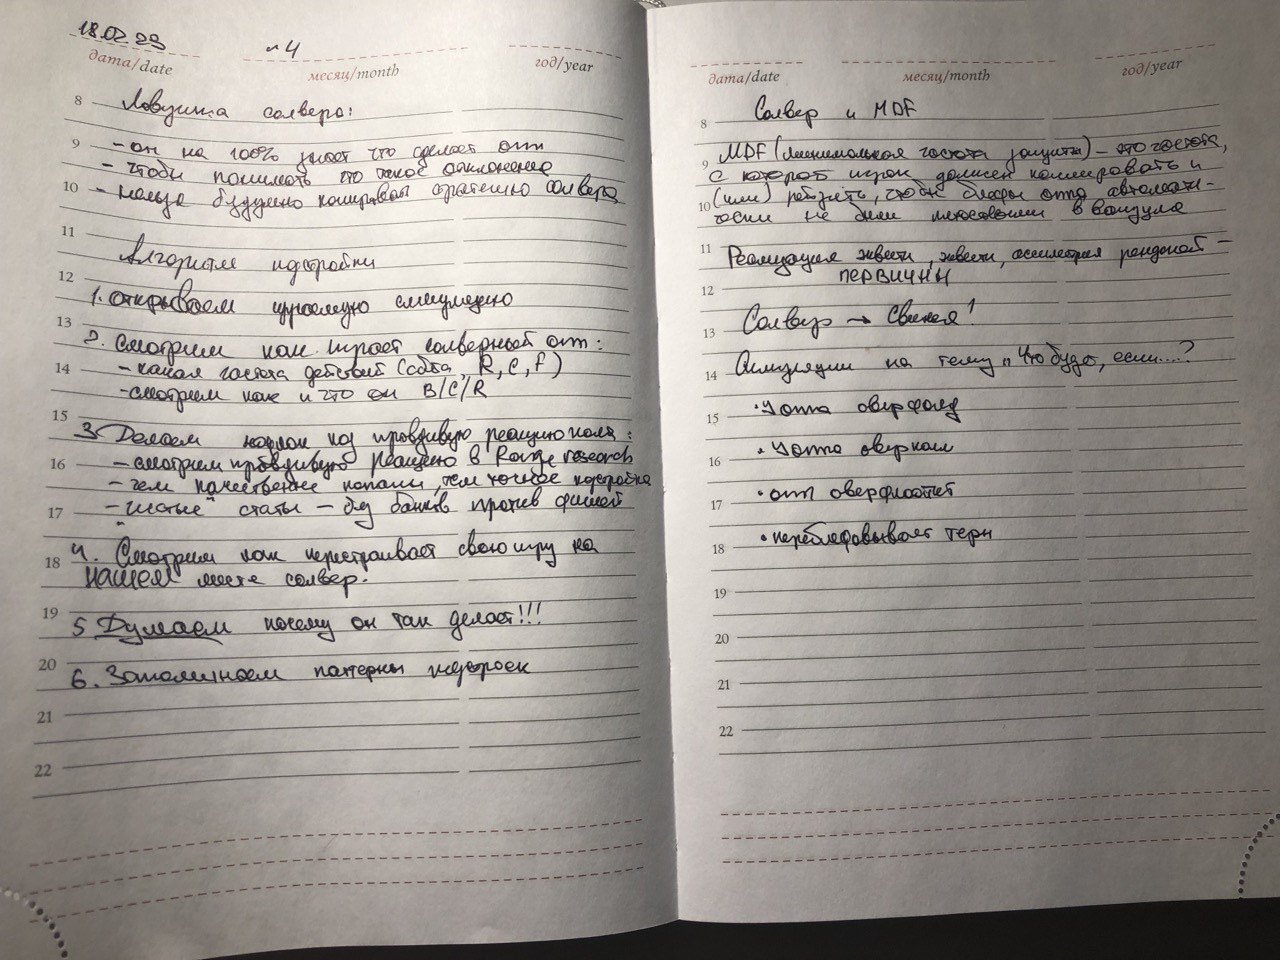 18.02 23
№4
дата/date
месяц/month
год/year
8 Ловушка солвера:
9 - он на 100% знает что сделает опп
- чтобы понимать что такое отклонение
10 - нельзя бездумно копировать стратегию солвера
11
Алгоритм подстройки
12
1. открываем изучаемую ситуацию
13
2. Смотрим как играет солверный опп:
14 - какая частота действий (ставка, R, C, F)
- смотрим как и что он B/C/R
15
3 Делаем нодлок под правдивую реакцию поля:
16 - смотрим правдивую реакцию в Range research
- чем качественнее копаем, тем точнее подстройка
17 - чистые статы - без банков против фишей
18 4. Смотрим как перестраивает свою игру на
нашем месте солвер.
19
5 Думаем почему он так делает!!!
20
6. Запоминаем паттерны подстроек
21
22
дата/date
месяц/month
год/year
8 Солвер и MDF
9 MDF (минимальная частота защиты) - это частота,
с которой игрок должен коллировать и
10 (или) рейзить, чтобы блефы оппа автомати-
чески не были плюсовыми в вакууме
11
Реализация эквити, эквити, ассиметрия ренджей -
ПЕРВИЧНЫ
12
13 Солвер → Свинья!
14 Симуляции на тему "Что будет, если....?
15 • У оппа оверфолд
16 • У оппа оверколл
17 • опп оверфлотит
18 • переблефовывает терн
19
20
21
22